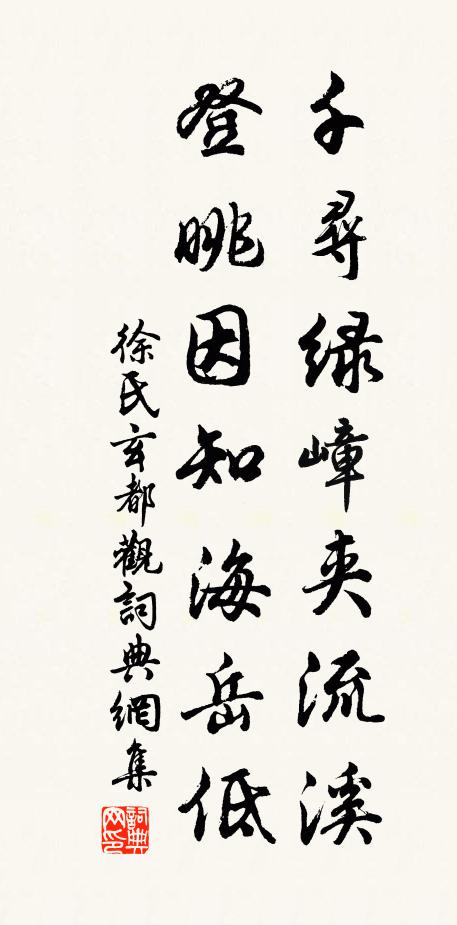 千尋緑嶂夾流溪
登眺因知海岳低
徐氏玄都觀詞典網集
詞典網印